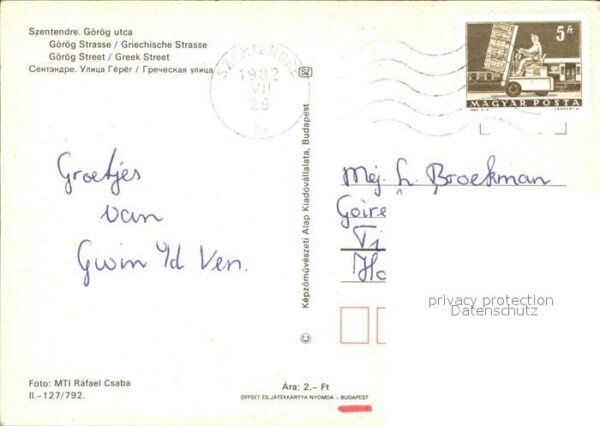 Szentendre. Görög utca
Görög Strasse / Griechische Strasse
Görög Street / Greek Street
Сентэндре. Улица Гёрёг / Греческая улица
SZENTENDRE
1982
VII
29
5 Ft
MAGYAR POSTA
Groetjes
van
Gwin v/d Ven.
Képzőművészeti Alap Kiadóvállalata, Budapest
©
Mej. L. Broekman
Goire
Ti
Ho
privacy protection
Datenschutz
Foto: MTI Ráfael Csaba
II.–127/792.
Ára: 2,– Ft
OFFSET ÉS JÁTÉKKÁRTYA NYOMDA – BUDAPEST